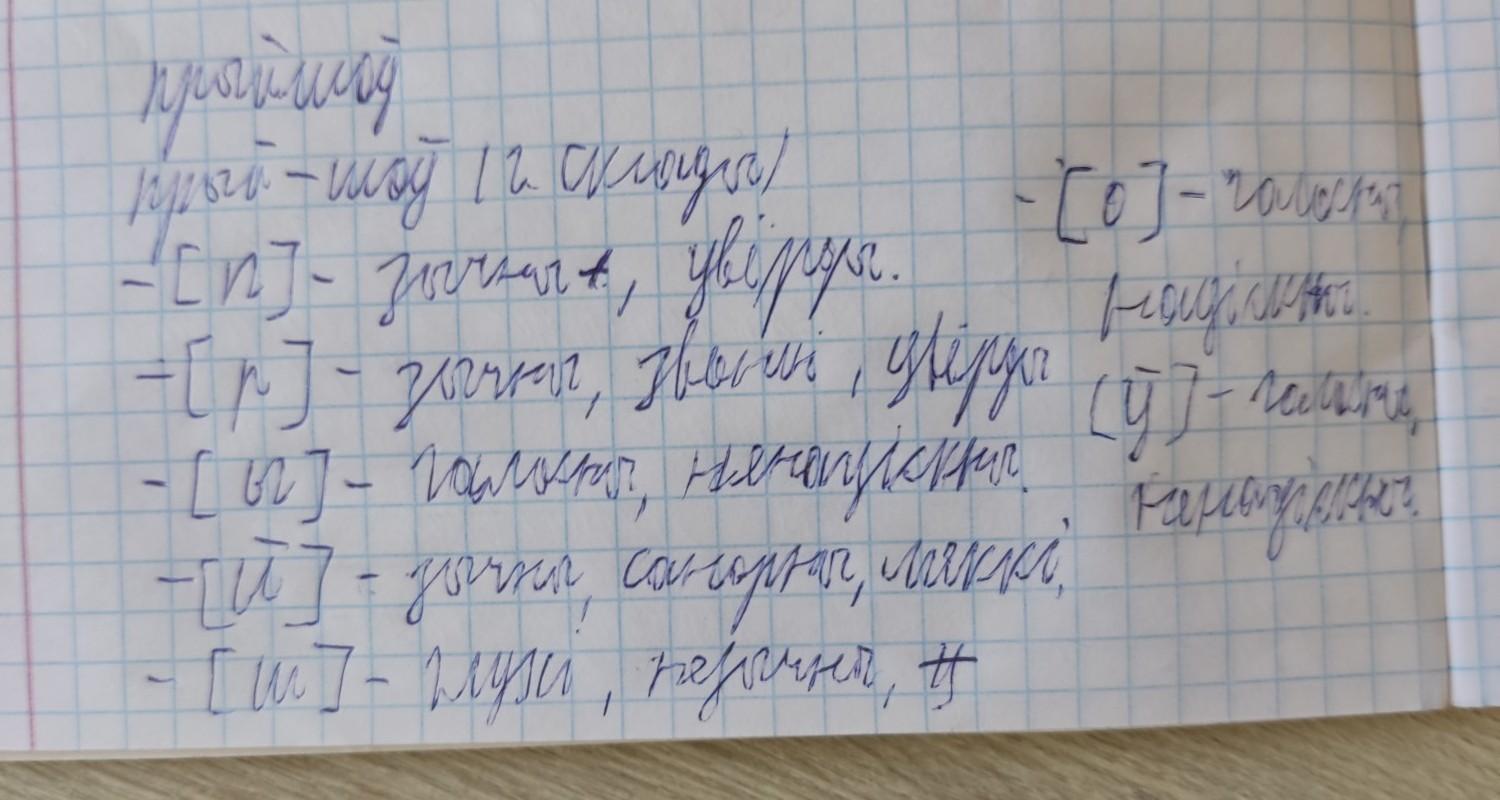 прыйшоў
прый-шоў (2 склады)
-[п]- зычны, цвёрды.
-[р]- зычны, звонкі, цвёрды
-[ы]- галосны, ненаціскны.
-[й]- зычны, санорны, мяккі,
-[ш]- глухі, незычны,
-[о]- галосны,
націскны.
[ў]- галосны,
ненаціскны.